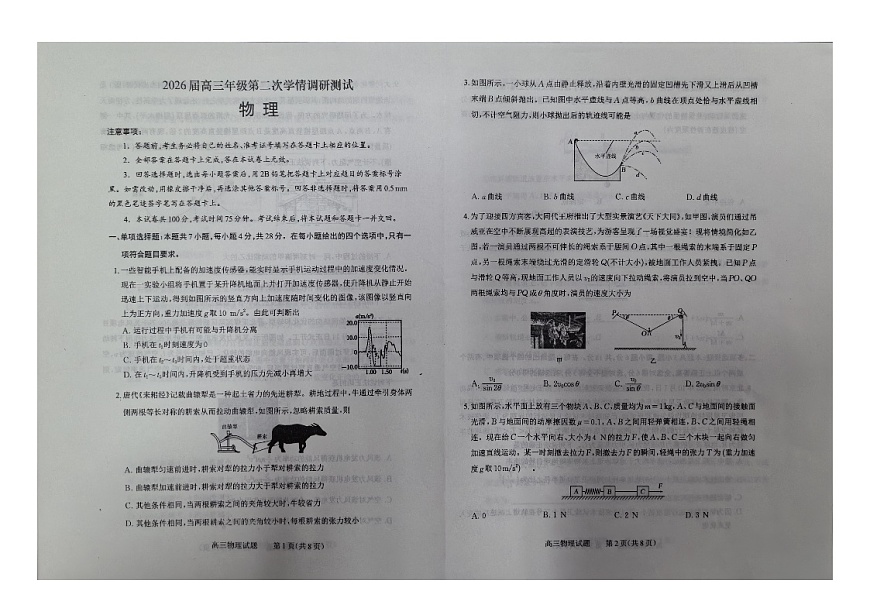 2026届高三年级第二次学情调研测试
物理
注意事项：
1. 答题前,考生务必将自己的姓名、准考证号填写在答题卡上相应的位置。
2. 全部答案在答题卡上完成,答在本试卷上无效。
3. 回答选择题时,选出每小题答案后,用2B铅笔把答题卡上对应题目的答案标号涂
黑。如需改动,用橡皮擦干净后,再选涂其他答案标号。回答非选择题时,将答案用0.5 mm
的黑色笔迹签字笔写在答题卡上。
4. 本试卷共100分,考试时间75分钟。考试结束后,将本试题和答题卡一并交回。
一、单项选择题:本题共7小题,每小题4分,共28分。在每小题给出的四个选项中,只有一
项符合题目要求。
1. 一些智能手机上配备的加速度传感器,能实时显示手机运动过程中的加速度变化情况。
现在一实验小组将手机置于某升降机地面上并打开加速度传感器,使升降机从静止开始
迅速上下运动,得到如图所示的竖直方向上加速度随时间变化的图像,该图像以竖直向
上为正方向,重力加速度g取10 m/s²。由此可判断出
A. 运行过程中手机有可能与升降机分离
B. 手机在t₁时刻速度为0
C. 手机在t₂～t₃时间内,处于超重状态
D. 在t₁～t₂时间内,升降机受到手机的压力先减小再增大
a(m/s²)
20.0
10.0
0
-10.0
1.00 1.50 t(s)
2. 唐代《耒耜经》记载曲辕犁是一种起土省力的先进耕犁。耕地过程中,牛通过牵引身体两
侧两根等长对称的耕索从而拉动曲辕犁,如图所示,忽略耕索质量,则
曲辕犁
耕索
A. 曲辕犁匀速前进时,耕索对犁的拉力小于犁对耕索的拉力
B. 曲辕犁加速前进时,耕索对犁的拉力大于犁对耕索的拉力
C. 其他条件相同,当两根耕索之间的夹角较大时,牛较省力
D. 其他条件相同,当两根耕索之间的夹角较小时,每根耕索的张力较小
高三物理试题 第1页(共8页)
3. 如图所示,一小球从A点由静止释放,沿着内壁光滑的固定凹槽先下滑又上滑后从凹槽
末端B点倾斜抛出。已知图中水平虚线与A点等高,b曲线在顶点处恰与水平虚线相
切,不计空气阻力,则小球抛出后的轨迹线可能是
A
水平虚线
B
a
b
c
d
A. a曲线 B. b曲线 C. c曲线 D. d曲线
4. 为了迎接四方宾客,大同代王府推出了大型实景演艺《天下大同》,如甲图,演员们通过吊
威亚在空中不断展现高超的表演技艺,为游客呈现了一场视觉盛宴!现将情境简化如乙
图,若一演员通过两根不可伸长的绳索系于腰间O点,其中一根绳索的末端系于固定P
点,另一根绳索末端绕过光滑的定滑轮Q(不计大小),被地面工作人员紧拽。已知P点
与滑轮Q等高,现地面工作人员以v₀的速度向下拉动绳索,将演员拉到空中,当PO、QO
两根绳索均与PQ成θ角度时,演员的速度大小为
P
Q
O
甲 乙
A. v₀/sin 2θ B. 2v₀cos θ C. v₀/sin θ D. 2v₀sin θ
5. 如图所示,水平面上放有三个物块A、B、C,质量均为m=1 kg,A、C与地面间的接触面
光滑,B与地面间的动摩擦因数μ=0.1,A、B之间用轻弹簧相连,B、C之间用轻绳相
连。现在给C一个水平向右、大小为4 N的拉力F,使A、B、C三个木块一起向右做匀
加速直线运动。某一时刻撤去拉力F,则撤去力F的瞬间,轻绳中的张力T为(重力加速
度g取10 m/s²)
A B C F
A. 0 B. 1 N C. 2 N D. 3 N
高三物理试题 第2页(共8页)